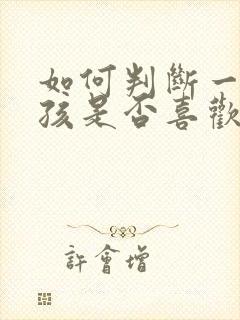 如何判斷一
孩是否喜歡
許會增